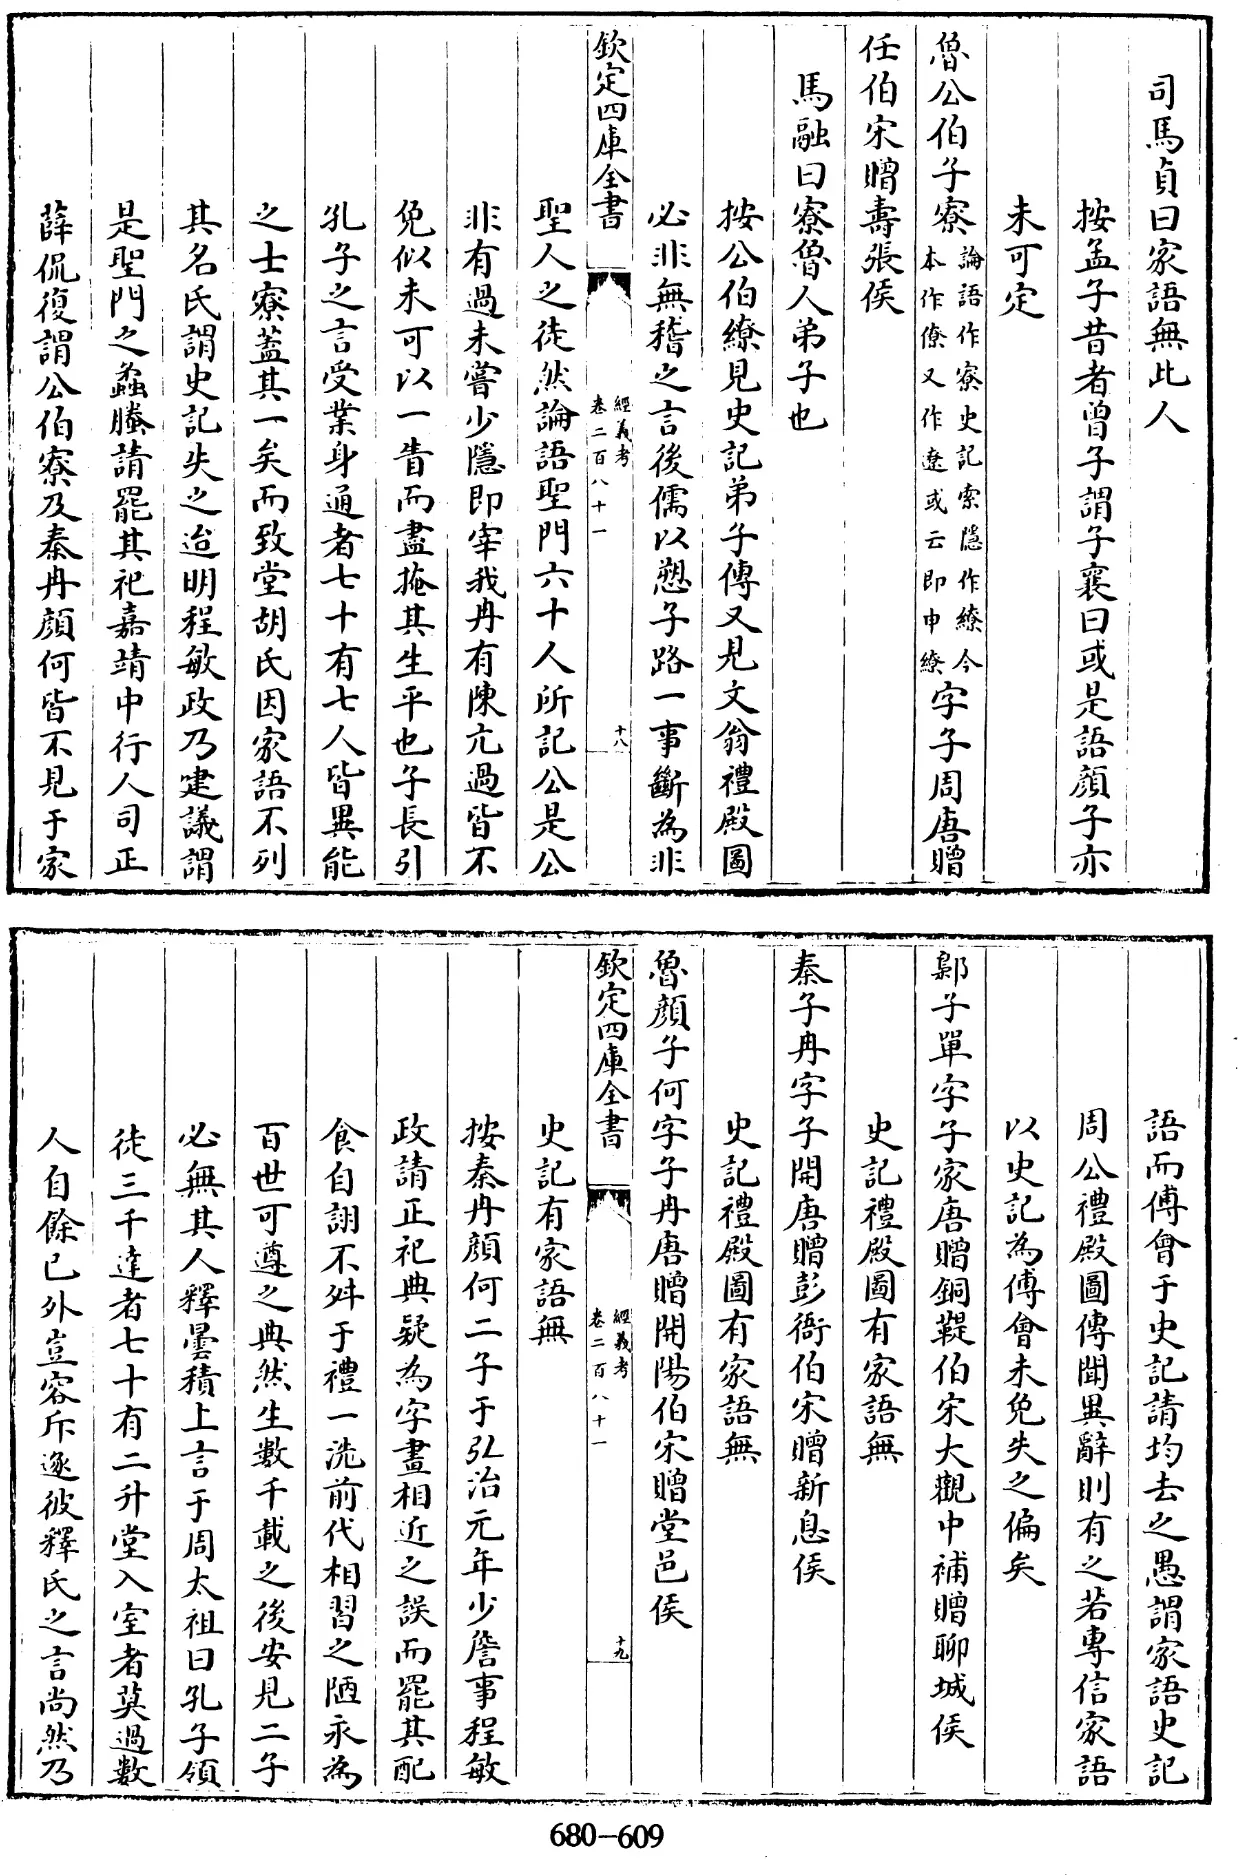 司馬貞曰家語無此人
按孟子昔者曾子謂子襄曰或是語顔子亦
未可定
魯公伯子寮論語作寮史記索隱作繚今本作僚又作遼或云即申繚字子周唐贈
任伯宋贈壽張侯
馬融曰寮魯人弟子也
按公伯繚見史記弟子傳又見文翁禮殿圖
必非無稽之言後儒以愬子路一事斷為非
欽定四庫全書
經義考
卷二百八十一
十八
聖人之徒然論語聖門六十人所記公是公
非有過未嘗少隱即宰我冉有陳亢過皆不
免似未可以一眚而盡掩其生平也子長引
孔子之言受業身通者七十有七人皆異能
之士寮蓋其一矣而致堂胡氏因家語不列
其名氏謂史記失之迨明程敏政乃建議謂
是聖門之蟊螣請罷其祀嘉靖中行人司正
薛侃復謂公伯寮及秦冉顔何皆不見于家
語而傅會于史記請均去之愚謂家語史記
周公禮殿圖傳聞異辭則有之若專信家語
以史記為傅會未免失之偏矣
鄡子單字子家唐贈銅鞮伯宋大觀中補贈聊城侯
史記禮殿圖有家語無
秦子冉字子開唐贈彭衙伯宋贈新息侯
史記禮殿圖有家語無
魯顔子何字子冉唐贈開陽伯宋贈堂邑侯
欽定四庫全書
經義考
卷二百八十一
十九
史記有家語無
按秦冉顔何二子于弘治元年少詹事程敏
政請正祀典疑為字畫相近之誤而罷其配
食自詡不舛于禮一洗前代相習之陋永為
百世可遵之典然生數千載之後安見二子
必無其人釋曇積上言于周太祖曰孔子領
徒三千達者七十有二升堂入室者莫過數
人自餘已外豈容斥逐彼釋氏之言尚然乃
680-609